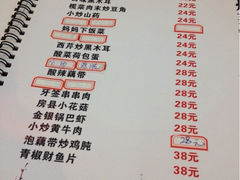 榄菜肉末炒豆角 22元
小炒山药 24元
24元
妈妈下饭菜 24元
24元
西芹炒黑木耳 24元
酸菜荷包蛋 24元
24元
酸辣藕带 28元
28元
牙签串串肉 28元
房县小花菇 28元
金银锅巴虾 28元
小炒黄牛肉 28元
泡藕带炒鸡肫 38元
青椒财鱼片 38元